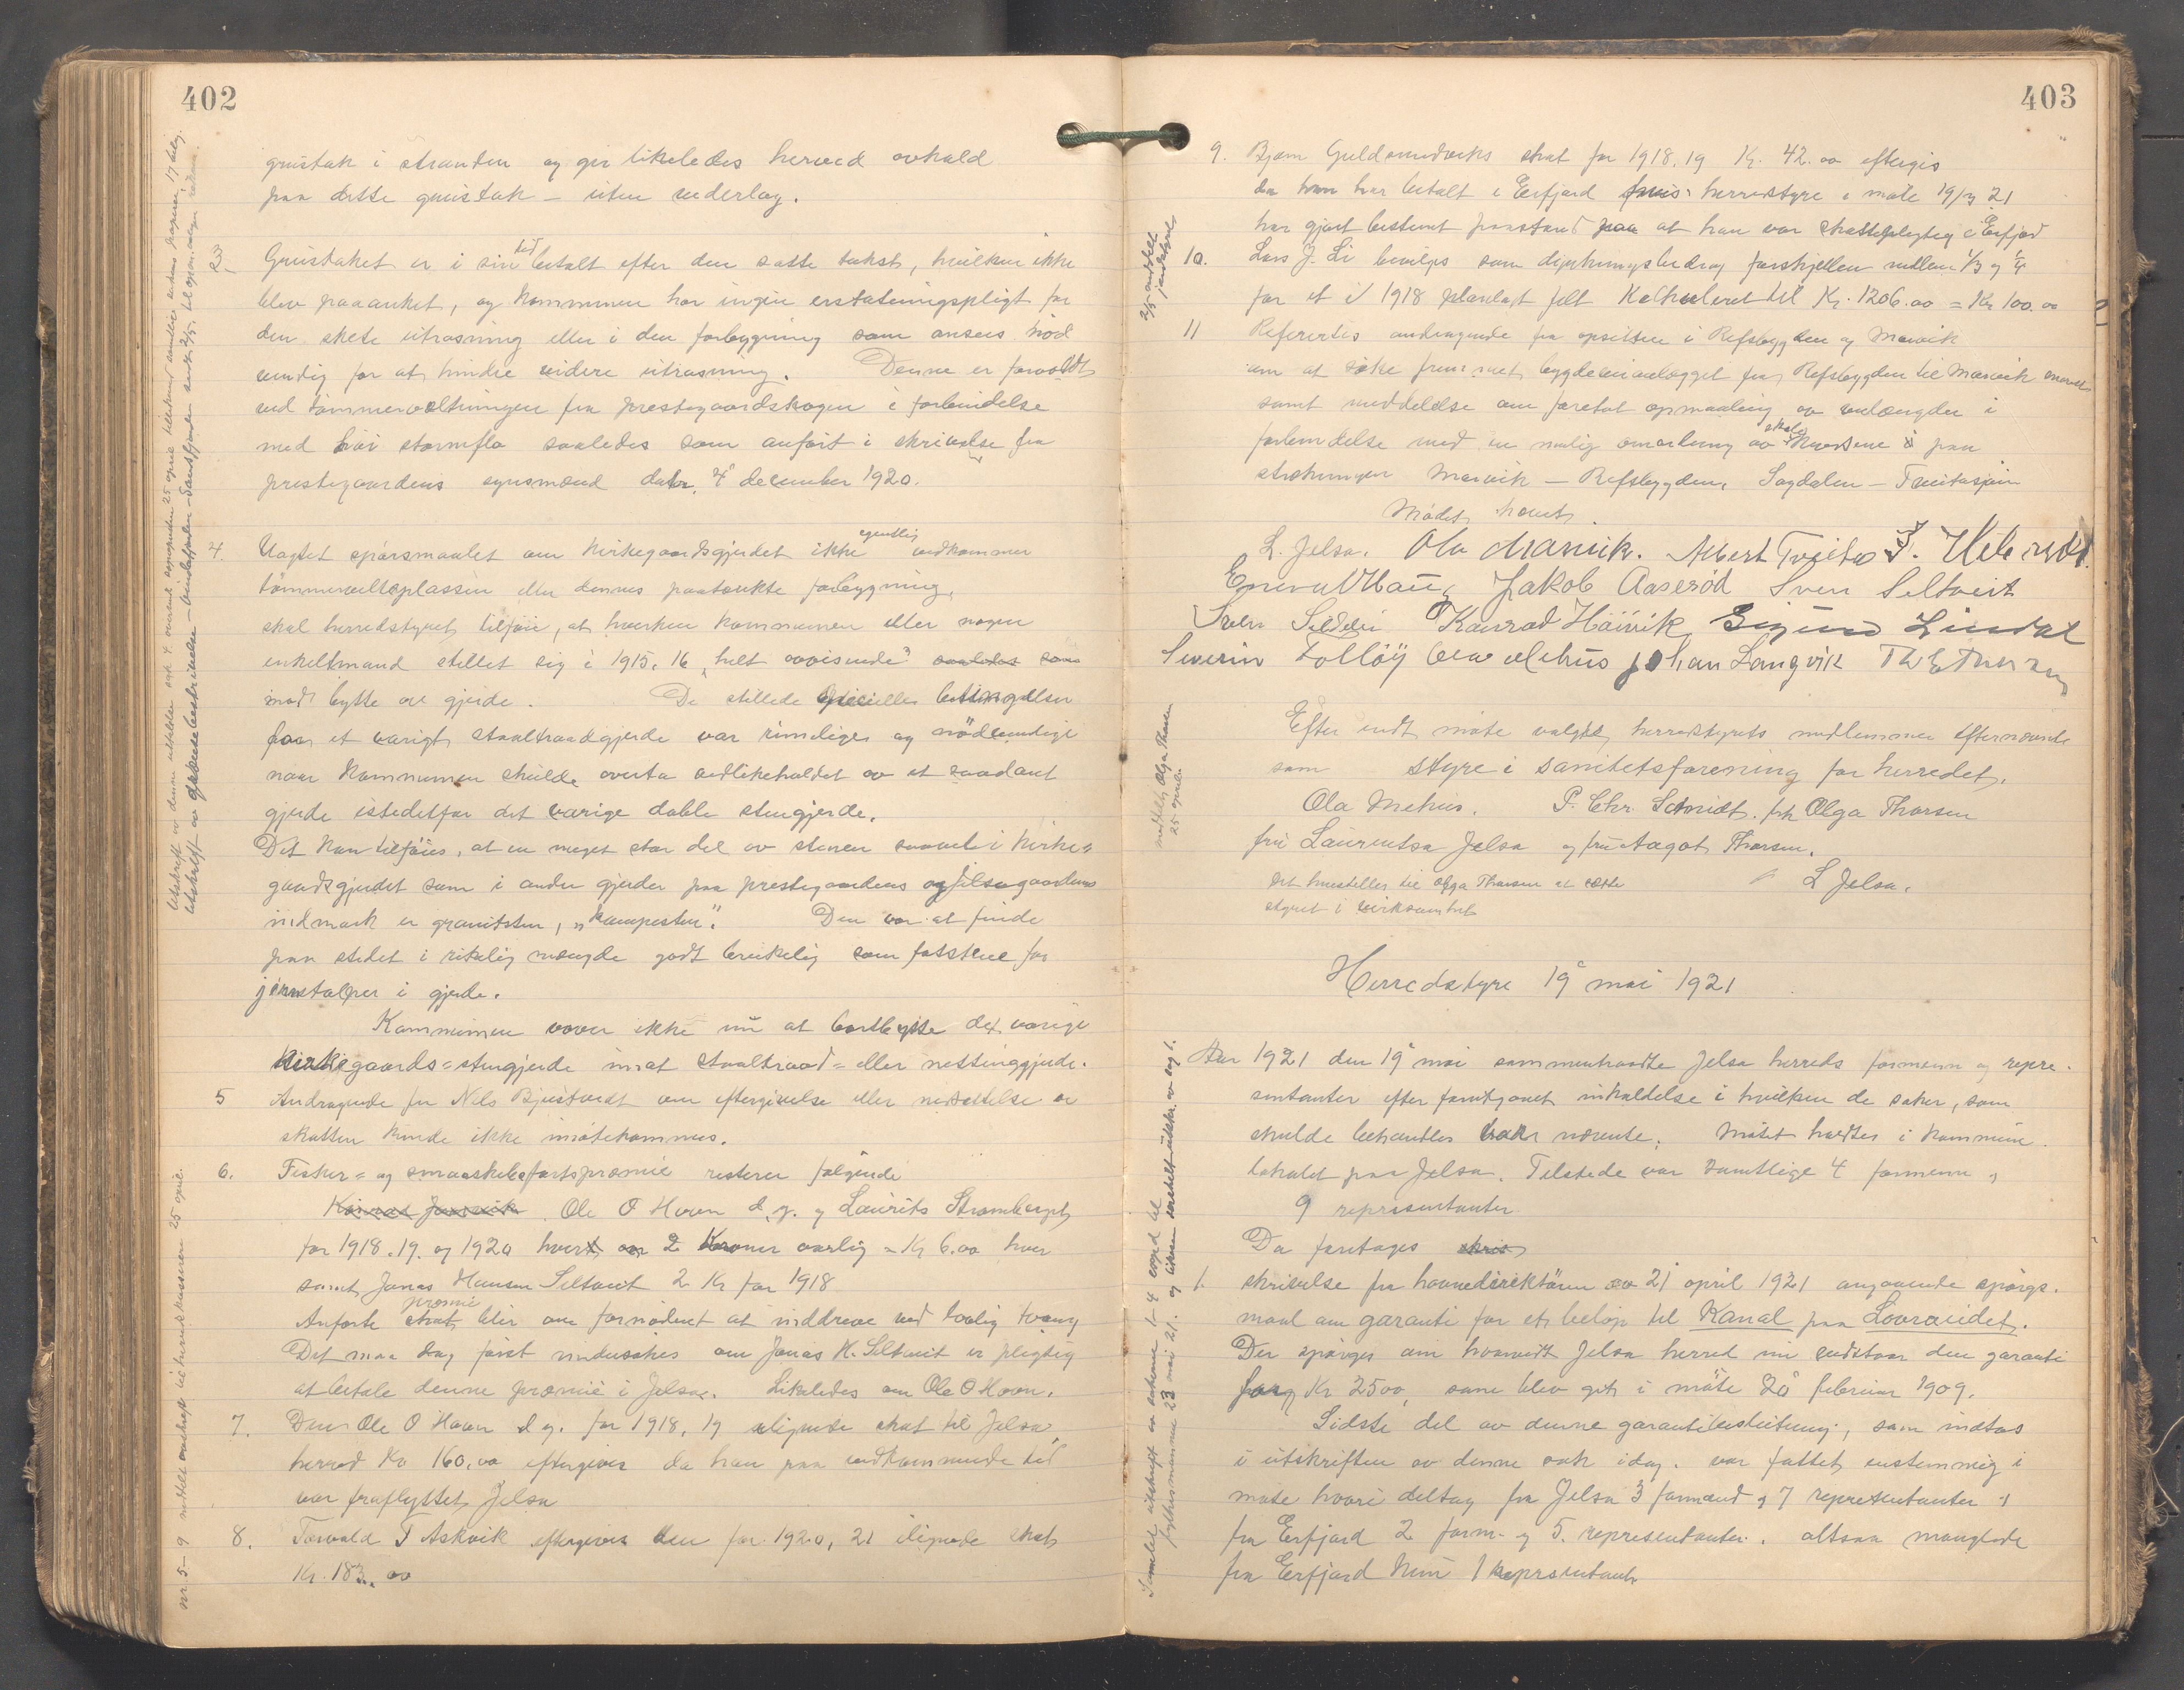 402
grustak i stranden og gir likeledes herved avkald
paa dette grustak – uten vederlag.
3
Grustaket er i sin tid betalt efter den satte takst, hvilken ikke
blev paaanket, og kommunen har ingen erstatningspligt for
den skete utrasning eller i den forbygning som ansees nød
vendig for at hindre videre utrasning. Denne er forvoldt
ved tømmervæltningen fra prestegaardskogen i forbindelse
med høi stormflo saaledes som anført i skrivelse fra
prestegaardens synsmænd datr. 4' december 1920.
4. Uagtet spørsmaalet om kirkegaardsgjerdet ikke egentlig vedkommer
tømmervæltsplassen eller dennes paatænkte forbygning,
skal herredstyret tilføie, at hverken kommunen eller nogen
enkeltmand stillet sig i 1915, 16 „helt avvisende" saaledes som
mod bytte av gjerde. De stillede specielle betingelser
for et varigt staaltraadgjerde var rimelige og nødvendige
naar kommunen skulde overta vedlikeholdet av et saadant
gjerde istedetfor det varige doble stengjerde.
Det kan tilføies, at en meget stor del av stenen saavel i kirke=
gaardsgjerdet som i andre gjerder paa prestegaardens og Jelsagaardens
indmark er granitsten, „kampesten". Den var at finde
paa stedet i rikelig mengde godt brukelig som fotstene for
jernstolper i gjerde.
Kommunen vover ikke nu at bortbytte det varige
kirkegaards=stengjerde mot staaltraad= eller nettinggjerde.
5 Andragende fra Nels Bjustvedt om eftergivelse eller nedsettelse av
skatten kunde ikke imøtekommes.
6. Fisker= og smaaskibsfartspræmie resterer følgende
Ole O Hoven d.y. og Laurits Stromberget
for 1918, 19. og 1920 hver 2 Kroner aarlig = Kr 6.00 hver
samt Jonas Hansen Seltveit 2 Kr for 1918
Anførte skat præmie blir om fornødent at inddreve ved lovlig tvang
Det maa dog først undersøkes om Jonas H. Seltveit er pligtig
at betale denne præmie i Jelsa. Likeledes om Ole O Hoven.
7. Den Ole O Hoven d y. for 1918, 19 ilignede skat til Jelsa
herred Kr 160,00 eftergives da han paa vedkommende tid
var fraflyttet Jelsa
8. Torvald T Askvik eftergives den for 1920, 21 ilignede skat
Kr. 183.00
403
9. Bjørn Guldsmedviks skat for 1918, 19 Kr. 42.00 eftergis
da han har betalt i Erfjord herredstyre i møte 19/3 21
har gjort bestemt paastand paa at han var skattepligtig i Erfjord
10. Lars J. Li bevilges som dyrkningsbidrag forskjellen mellem 1/3 og 1/4
for et i 1918 planlagt felt Kalkuleret til Kr. 1206.00 = Kr 100.00
11 Refereres andragende fra opsittere i Refsbygden og Marvik
om at søke fremmet bygdeveianlægget fra Refsbygden til Marvik
samt meddelelse om foretat opmaaling av veilængder i
forbindelse med en mulig omordning av skyds i paa
strækningen Marvik – Refsbygden, Sagdalen – Tveitasjøen
Mødet hævet.
L. Jelsa. Ola Marvik. Albert Tveita
Jakob Aaserød Sven Seltveit
Konrad Høivik Sigurd Lindal
Severin Foldøy Ola Mehus Johan Langvik
Efter endt møte valgte herredstyrets medlemmer efternævnte
som styre i sanitetsforening for herredet.
Ola Mehus. P. Chr. Schmidt. frk Olga Thorsen
fru Laurentsa Jelsa og fru Aagot Thorsen.
Det henstilles til Olga Thorsen at sætte
styret i virksomhet
L Jelsa.
Herredstyre 19' mai 1921
Aar 1921 den 19' mai sammentraadte Jelsa herreds formænn og repre.
sentanter efter forutgaaet inkaldelse i hvilken de saker, som
skulde behandles var nævnte. Møtet holdtes i kommune
lokalet paa Jelsa. Tilstede var samtlige 4 formenn,
9 representanter
Da foretages
1. skrivelse fra havnedirektøren av 21' april 1921 angaaende spørgs.
maal om garanti for et beløp til Kanal paa Lovraeidet.
Der spørges om hvorvidt Jelsa herred nu vedstaar den garanti
for Kr 2500, som blev git i møte 20' februar 1909.
Sidste del av denne garantibeslutning, som indtas
i utskriften av denne sak idag. var fattet enstemmig i
møte hvori deltog fra Jelsa 3 formænd og 7 representanter og
fra Erfjord 2 form- og 5. representanter. altsaa manglede
fra Erfjord kun 1 representant